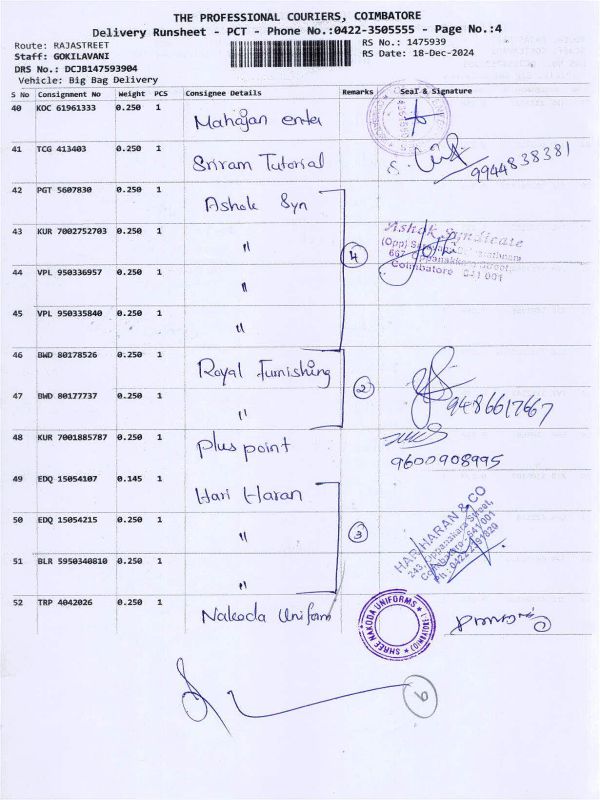 THE PROFESSIONAL COURIERS, COIMBATORE
Delivery Runsheet - PCT - Phone No.:0422-3505555 - Page No.:4
Route: RAJASTREET RS No.: 1475939
Staff: GOKILAVANI RS Date: 18-Dec-2024
DRS No.: DCJB147593904
Vehicle: Big Bag Delivery
S No Consignment No Weight PCS Consignee Details Remarks Seal & Signature
40 KOC 61961333 0.250 1 Mahajan enter
41 TCG 413403 0.250 1 Sriram Tutorial 9944838381
42 PGT 5607830 0.250 1 Ashok Syn
43 KUR 7002752703 0.250 1 "
Ashok Syndicate
(Opp)
667, Oppanakkara Street,
Coimbatore - 641 001
44 VPL 950336957 0.250 1 " 4
45 VPL 950335840 0.250 1 "
46 BWD 80178526 0.250 1 Royal Furnishing
47 BWD 80177737 0.250 1 " 2 9486617667
48 KUR 7001885787 0.250 1 plus point
9600908995
49 EDQ 15054107 0.145 1 Hari Haran
50 EDQ 15054215 0.250 1 " 3
HARI HARAN & CO
243, Oppanakara Street,
Coimbatore - 641 001
Ph : 0422-
51 BLR 5950340810 0.250 1 "
52 TRP 4042026 0.250 1 Nakoda Uniform
SHREE NAKODA UNIFORMS
9